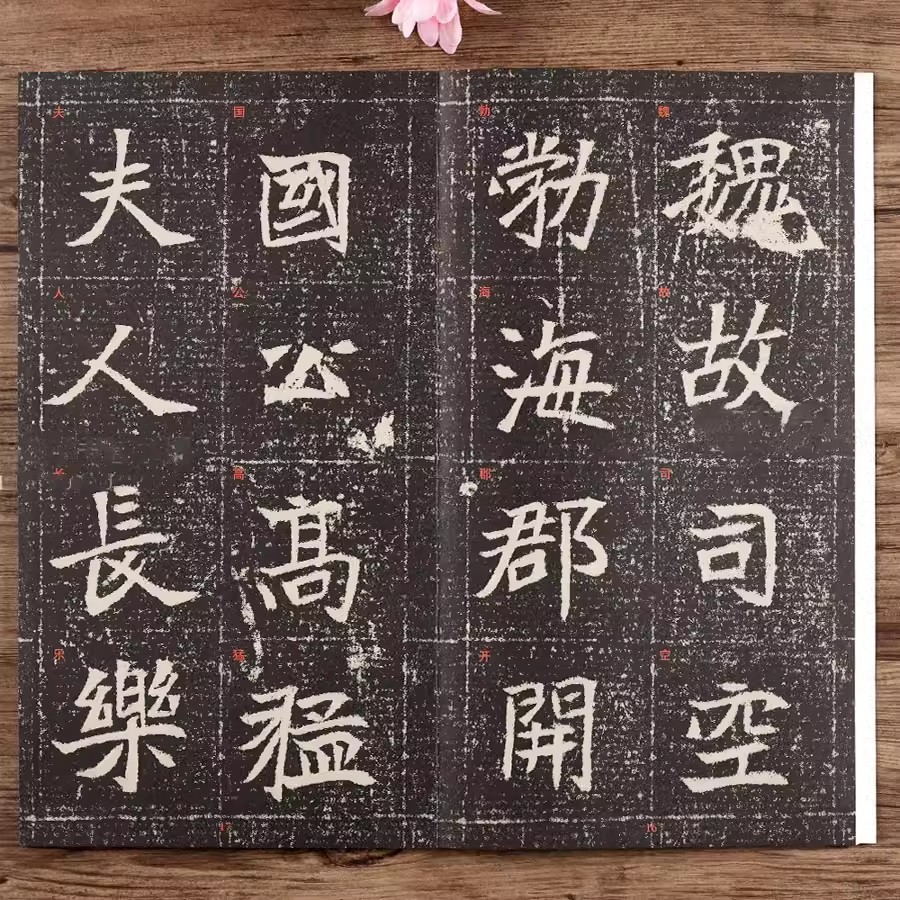 魏故司空
魏故司空
勃海郡開
勃海郡开
16
國公高猛
国公高猛
夫人長樂
夫人长乐
17